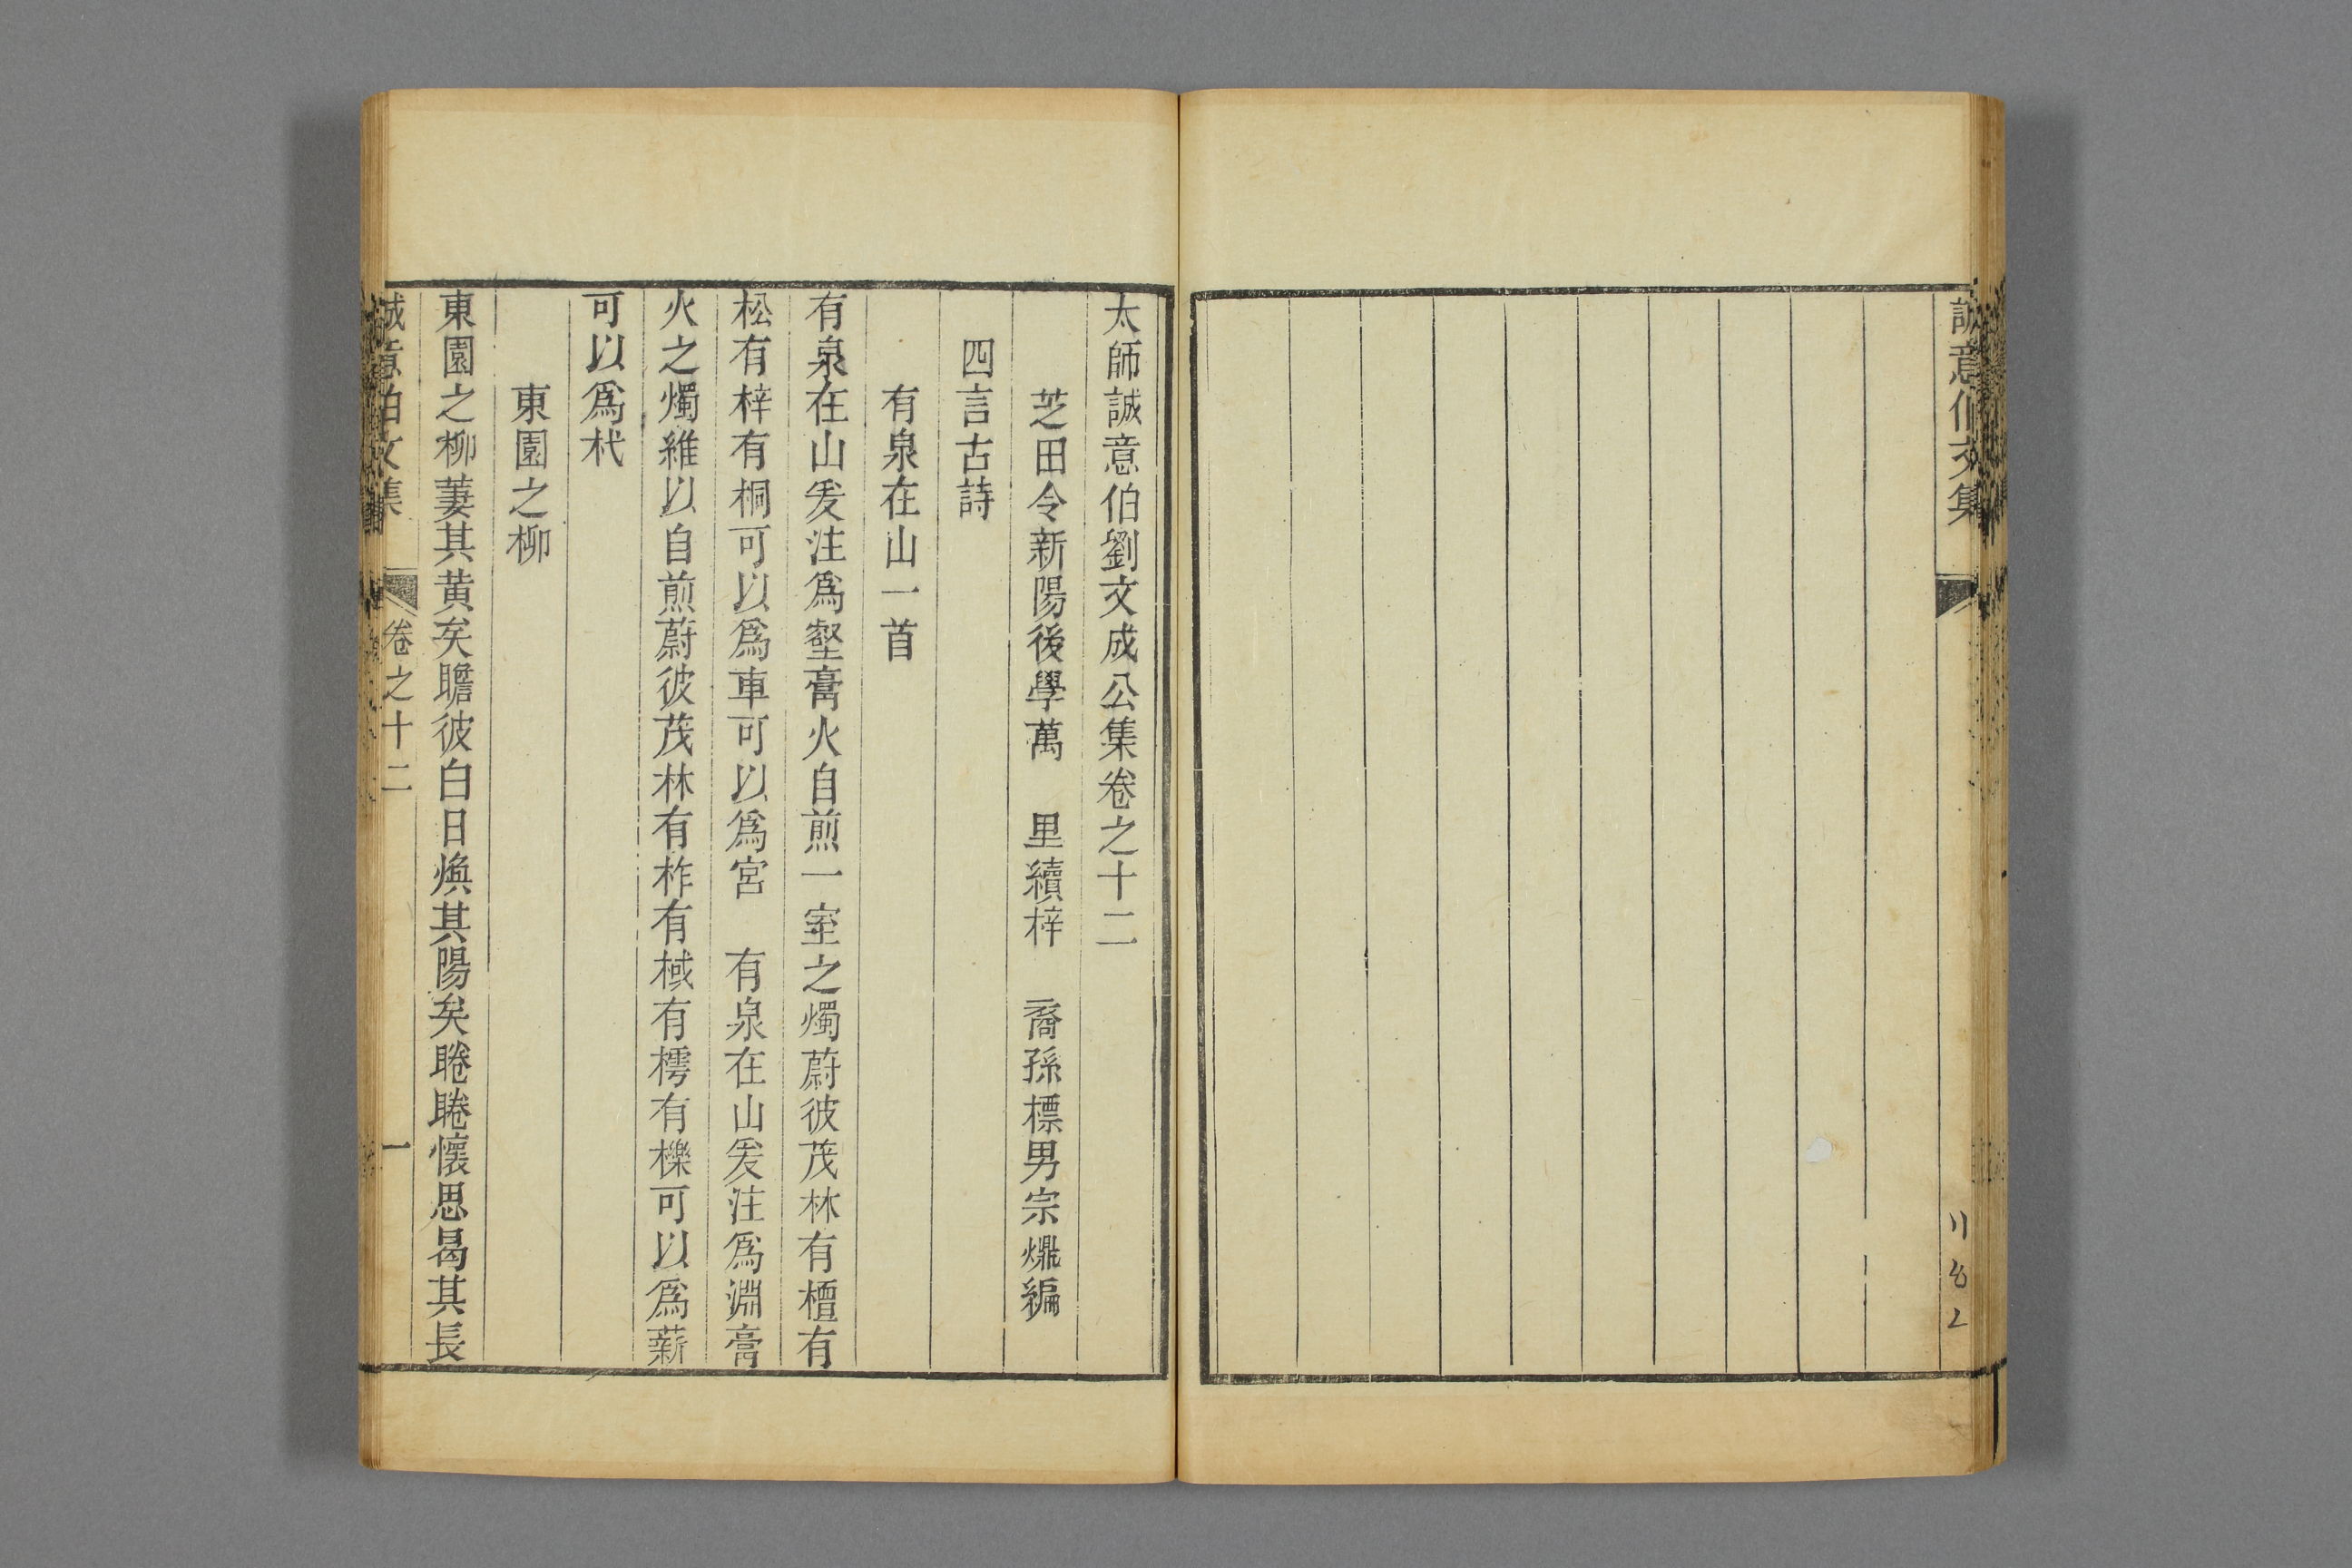 誠意伯文集
太師誠意伯劉文成公集卷之十二
芝田令新陽後學萬　里續梓　裔孫標男宗㷨編
四言古詩
有泉在山一首
有泉在山爰注爲壑膏火自煎一室之燭蔚彼茂林有檀有
松有梓有桐可以爲車可以爲宮　有泉在山爰注爲淵膏
火之燭維以自煎蔚彼茂林有柞有棫有樗有櫟可以爲薪
可以爲杙
東園之柳
東園之柳萋其黄矣瞻彼白日煥其陽矣睠睠懷思曷其長
誠意伯文集　卷之十二　一